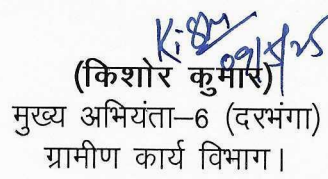 09/5/25
(किशोर कुमार)
मुख्य अभियंता–6 (दरभंगा)
ग्रामीण कार्य विभाग।